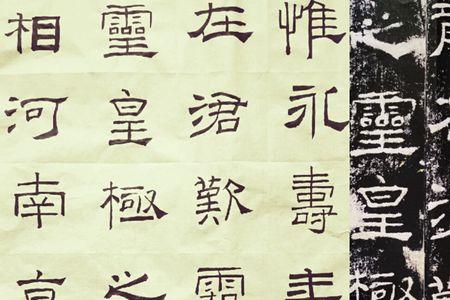 之靈皇極
惟永壽
在涒歎霜
靈皇極之
相河南京